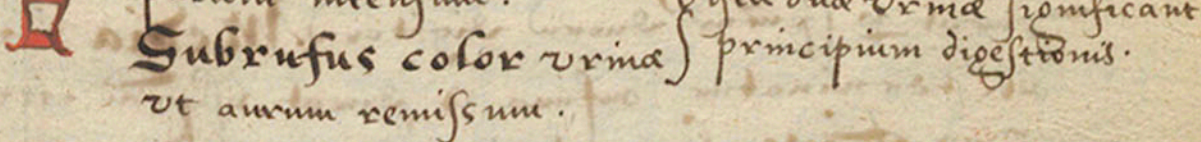 hęę duę vrinę significant
Subrufus color vrinę principium digestionis.
vt aurum remissum.